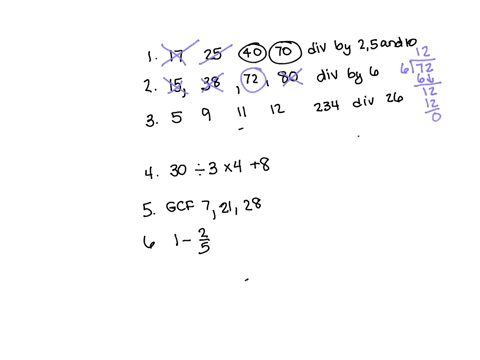 1. 17 25 40 70 div by 2,5 and 10
2. 15, 38, 72, 80 div by 6
12
6 72
6
12
12
0
3. 5 9 11 12 234 div 26
4. 30 ÷ 3 × 4 + 8
5. GCF 7, 21, 28
6 1 - 2/5